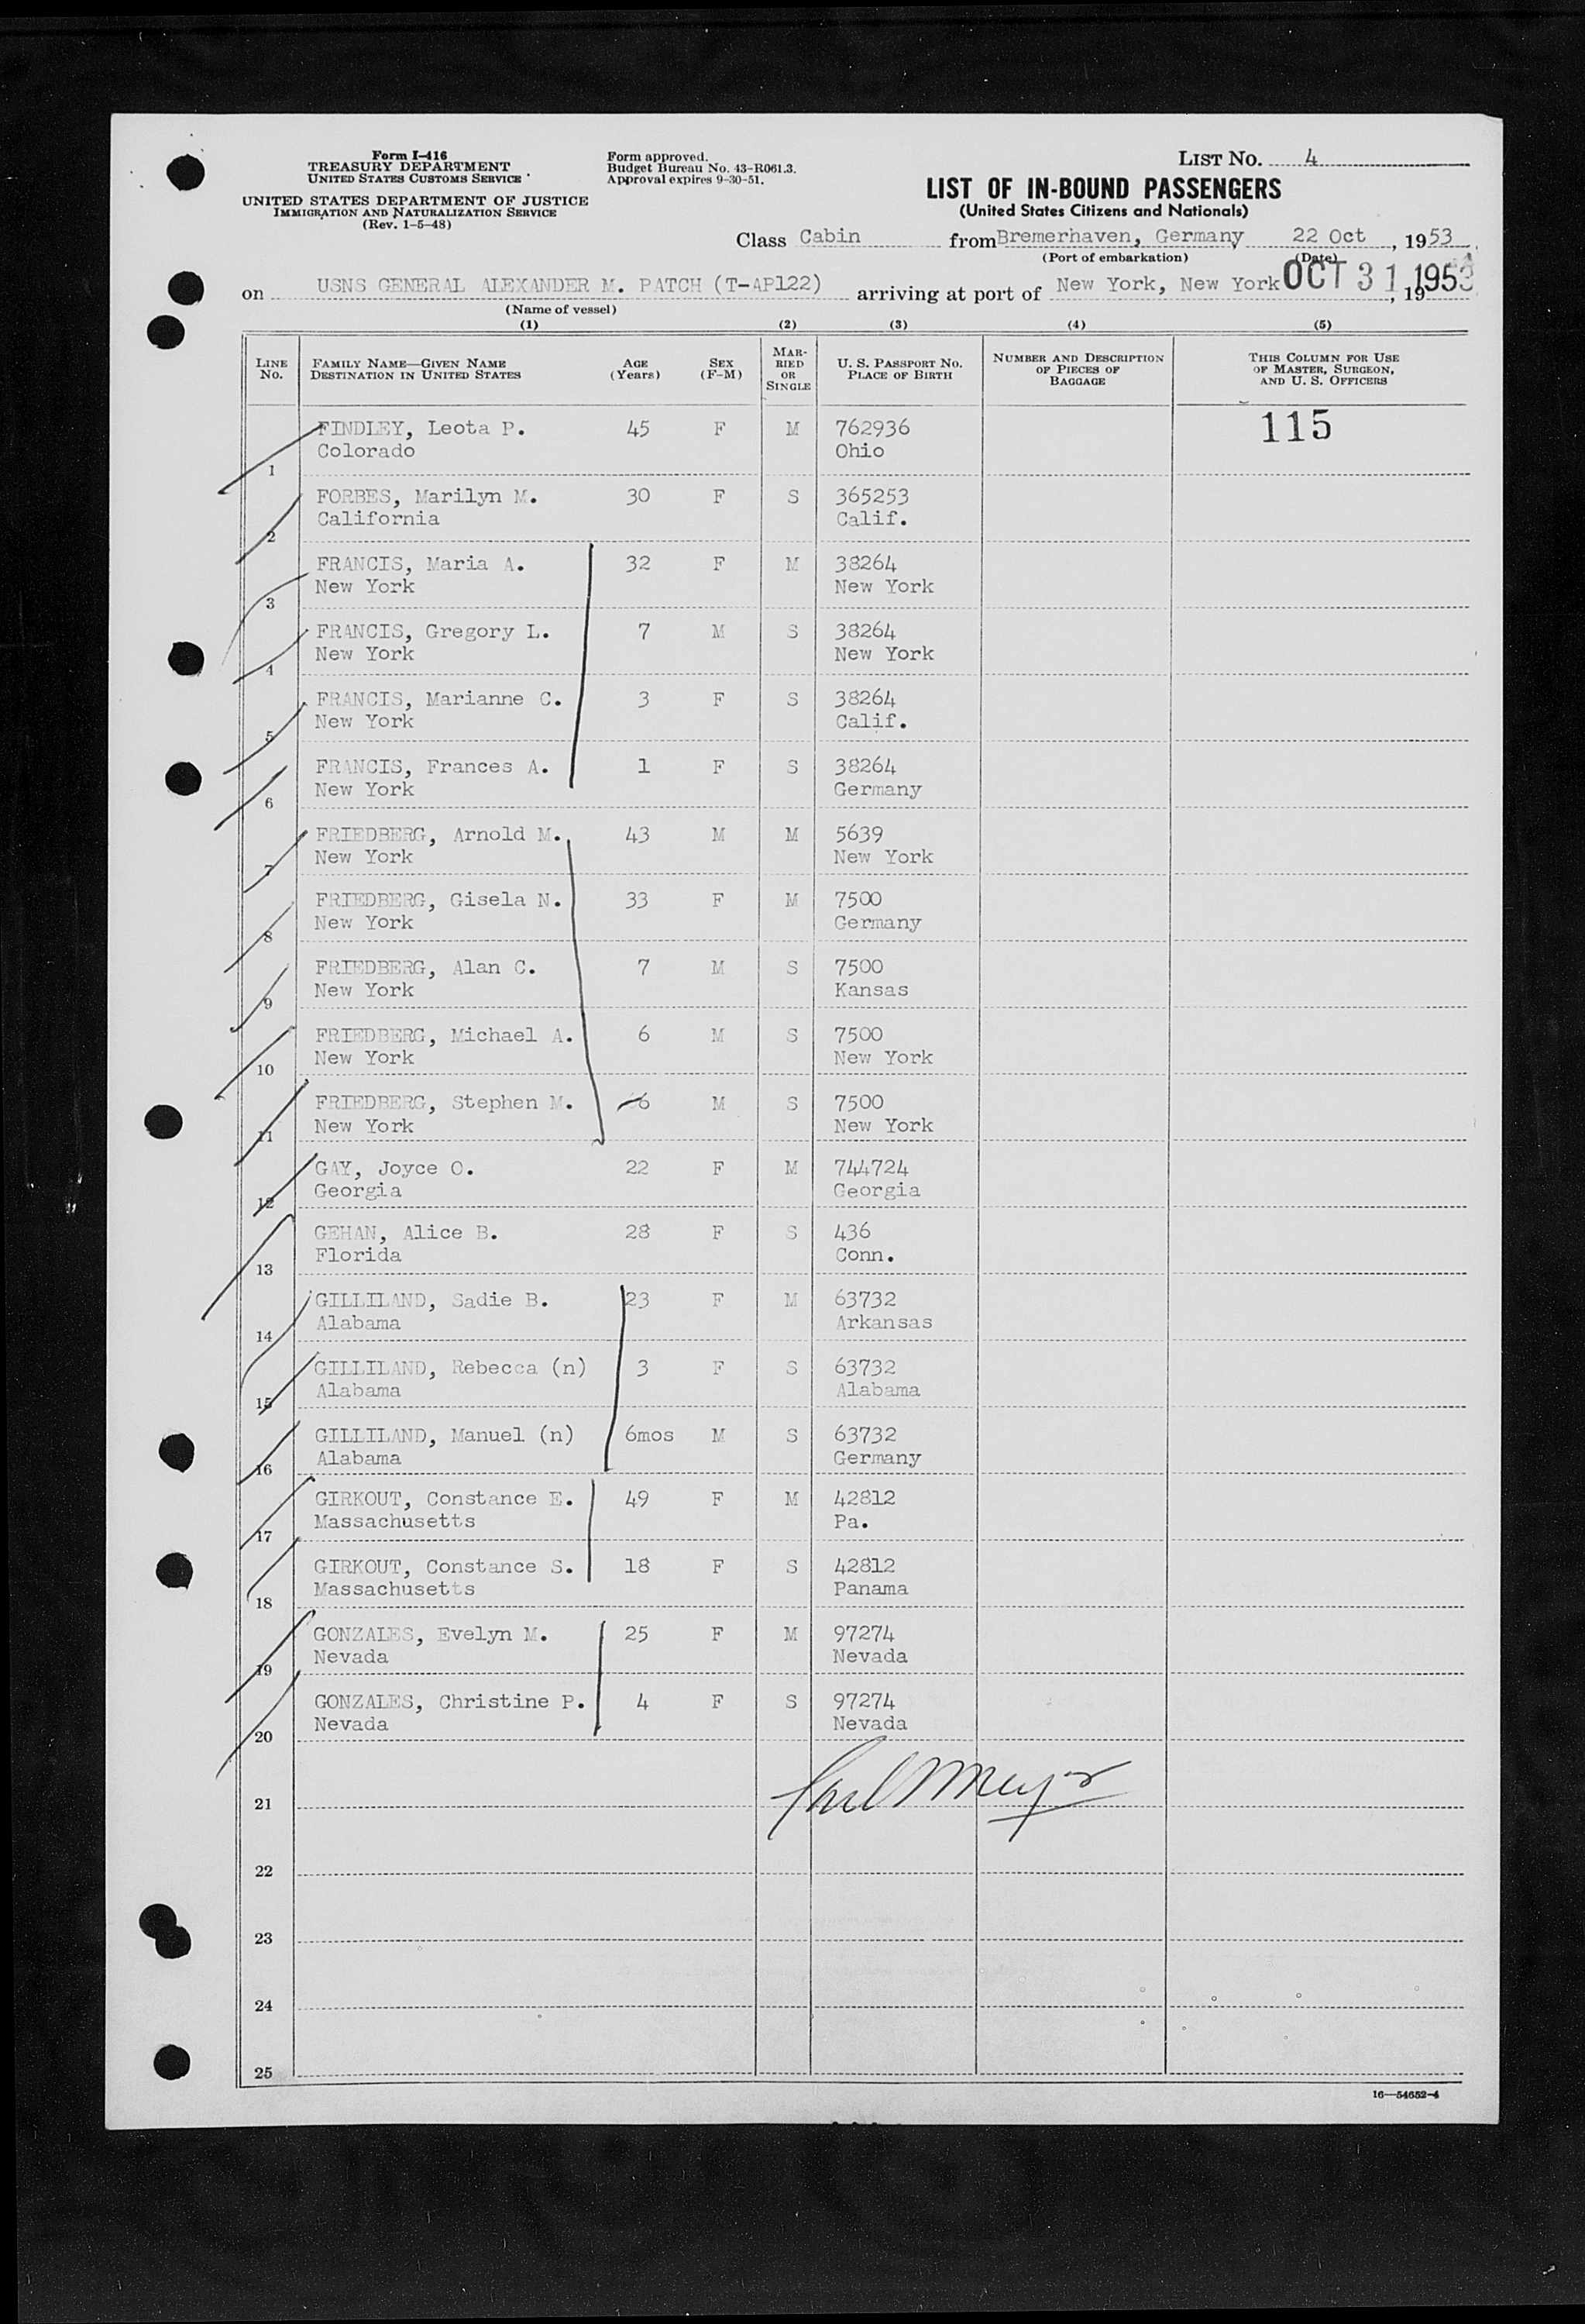 Form I-416
TREASURY DEPARTMENT
UNITED STATES CUSTOMS SERVICE
UNITED STATES DEPARTMENT OF JUSTICE
IMMIGRATION AND NATURALIZATION SERVICE
(Rev. 1-5-48)
Form approved.
Budget Bureau No. 43-R061.3.
Approval expires 9-30-51.
LIST NO. 4
LIST OF IN-BOUND PASSENGERS
(United States Citizens and Nationals)
Class Cabin from Bremerhaven, Germany 22 Oct, 1953
(Port of embarkation) (Date)
on USNS GENERAL ALEXANDER M. PATCH (T-AP122) arriving at port of New York, New York OCT 31 1953, 19
(Name of vessel)
(1) (2) (3) (4) (5)
LINE NO. FAMILY NAME—GIVEN NAME DESTINATION IN UNITED STATES AGE (Years) SEX (F-M) MARRIED OR SINGLE U. S. PASSPORT NO. PLACE OF BIRTH NUMBER AND DESCRIPTION OF PIECES OF BAGGAGE THIS COLUMN FOR USE OF MASTER, SURGEON, AND U. S. OFFICERS
FINDLEY, Leota P. 45 F M 762936 115
1 Colorado Ohio
FORBES, Marilyn M. 30 F S 365253
2 California Calif.
FRANCIS, Maria A. 32 F M 38264
3 New York New York
FRANCIS, Gregory L. 7 M S 38264
4 New York New York
FRANCIS, Marianne C. 3 F S 38264
5 New York Calif.
FRANCIS, Frances A. 1 F S 38264
6 New York Germany
FRIEDBERG, Arnold M. 43 M M 5639
7 New York New York
FRIEDBERG, Gisela N. 33 F M 7500
8 New York Germany
FRIEDBERG, Alan C. 7 M S 7500
9 New York Kansas
FRIEDBERG, Michael A. 6 M S 7500
10 New York New York
FRIEDBERG, Stephen M. 6 M S 7500
11 New York New York
GAY, Joyce O. 22 F M 744724
12 Georgia Georgia
GEHAN, Alice B. 28 F S 436
13 Florida Conn.
GILLILAND, Sadie B. 23 F M 63732
14 Alabama Arkansas
GILLILAND, Rebecca (n) 3 F S 63732
15 Alabama Alabama
GILLILAND, Manuel (n) 6mos M S 63732
16 Alabama Germany
GIRKOUT, Constance E. 49 F M 42812
17 Massachusetts Pa.
GIRKOUT, Constance S. 18 F S 42812
18 Massachusetts Panama
GONZALES, Evelyn M. 25 F M 97274
19 Nevada Nevada
GONZALES, Christine P. 4 F S 97274
20 Nevada Nevada
21
22
23
24
25
16—54652-4